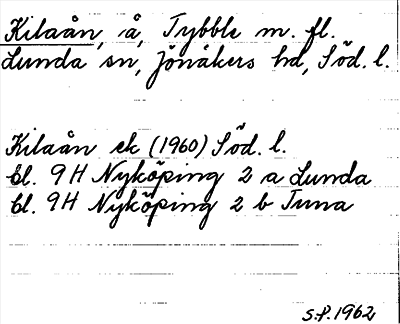 Kilaån, å, Tybble m. fl.
Lunda sn, Jönåkers hd, Söd. l.
Kilaån ek (1960) Söd. l.
bl. 9H Nyköping 2 a Lunda
bl. 9H Nyköping 2 b Tuna
S.P. 1962